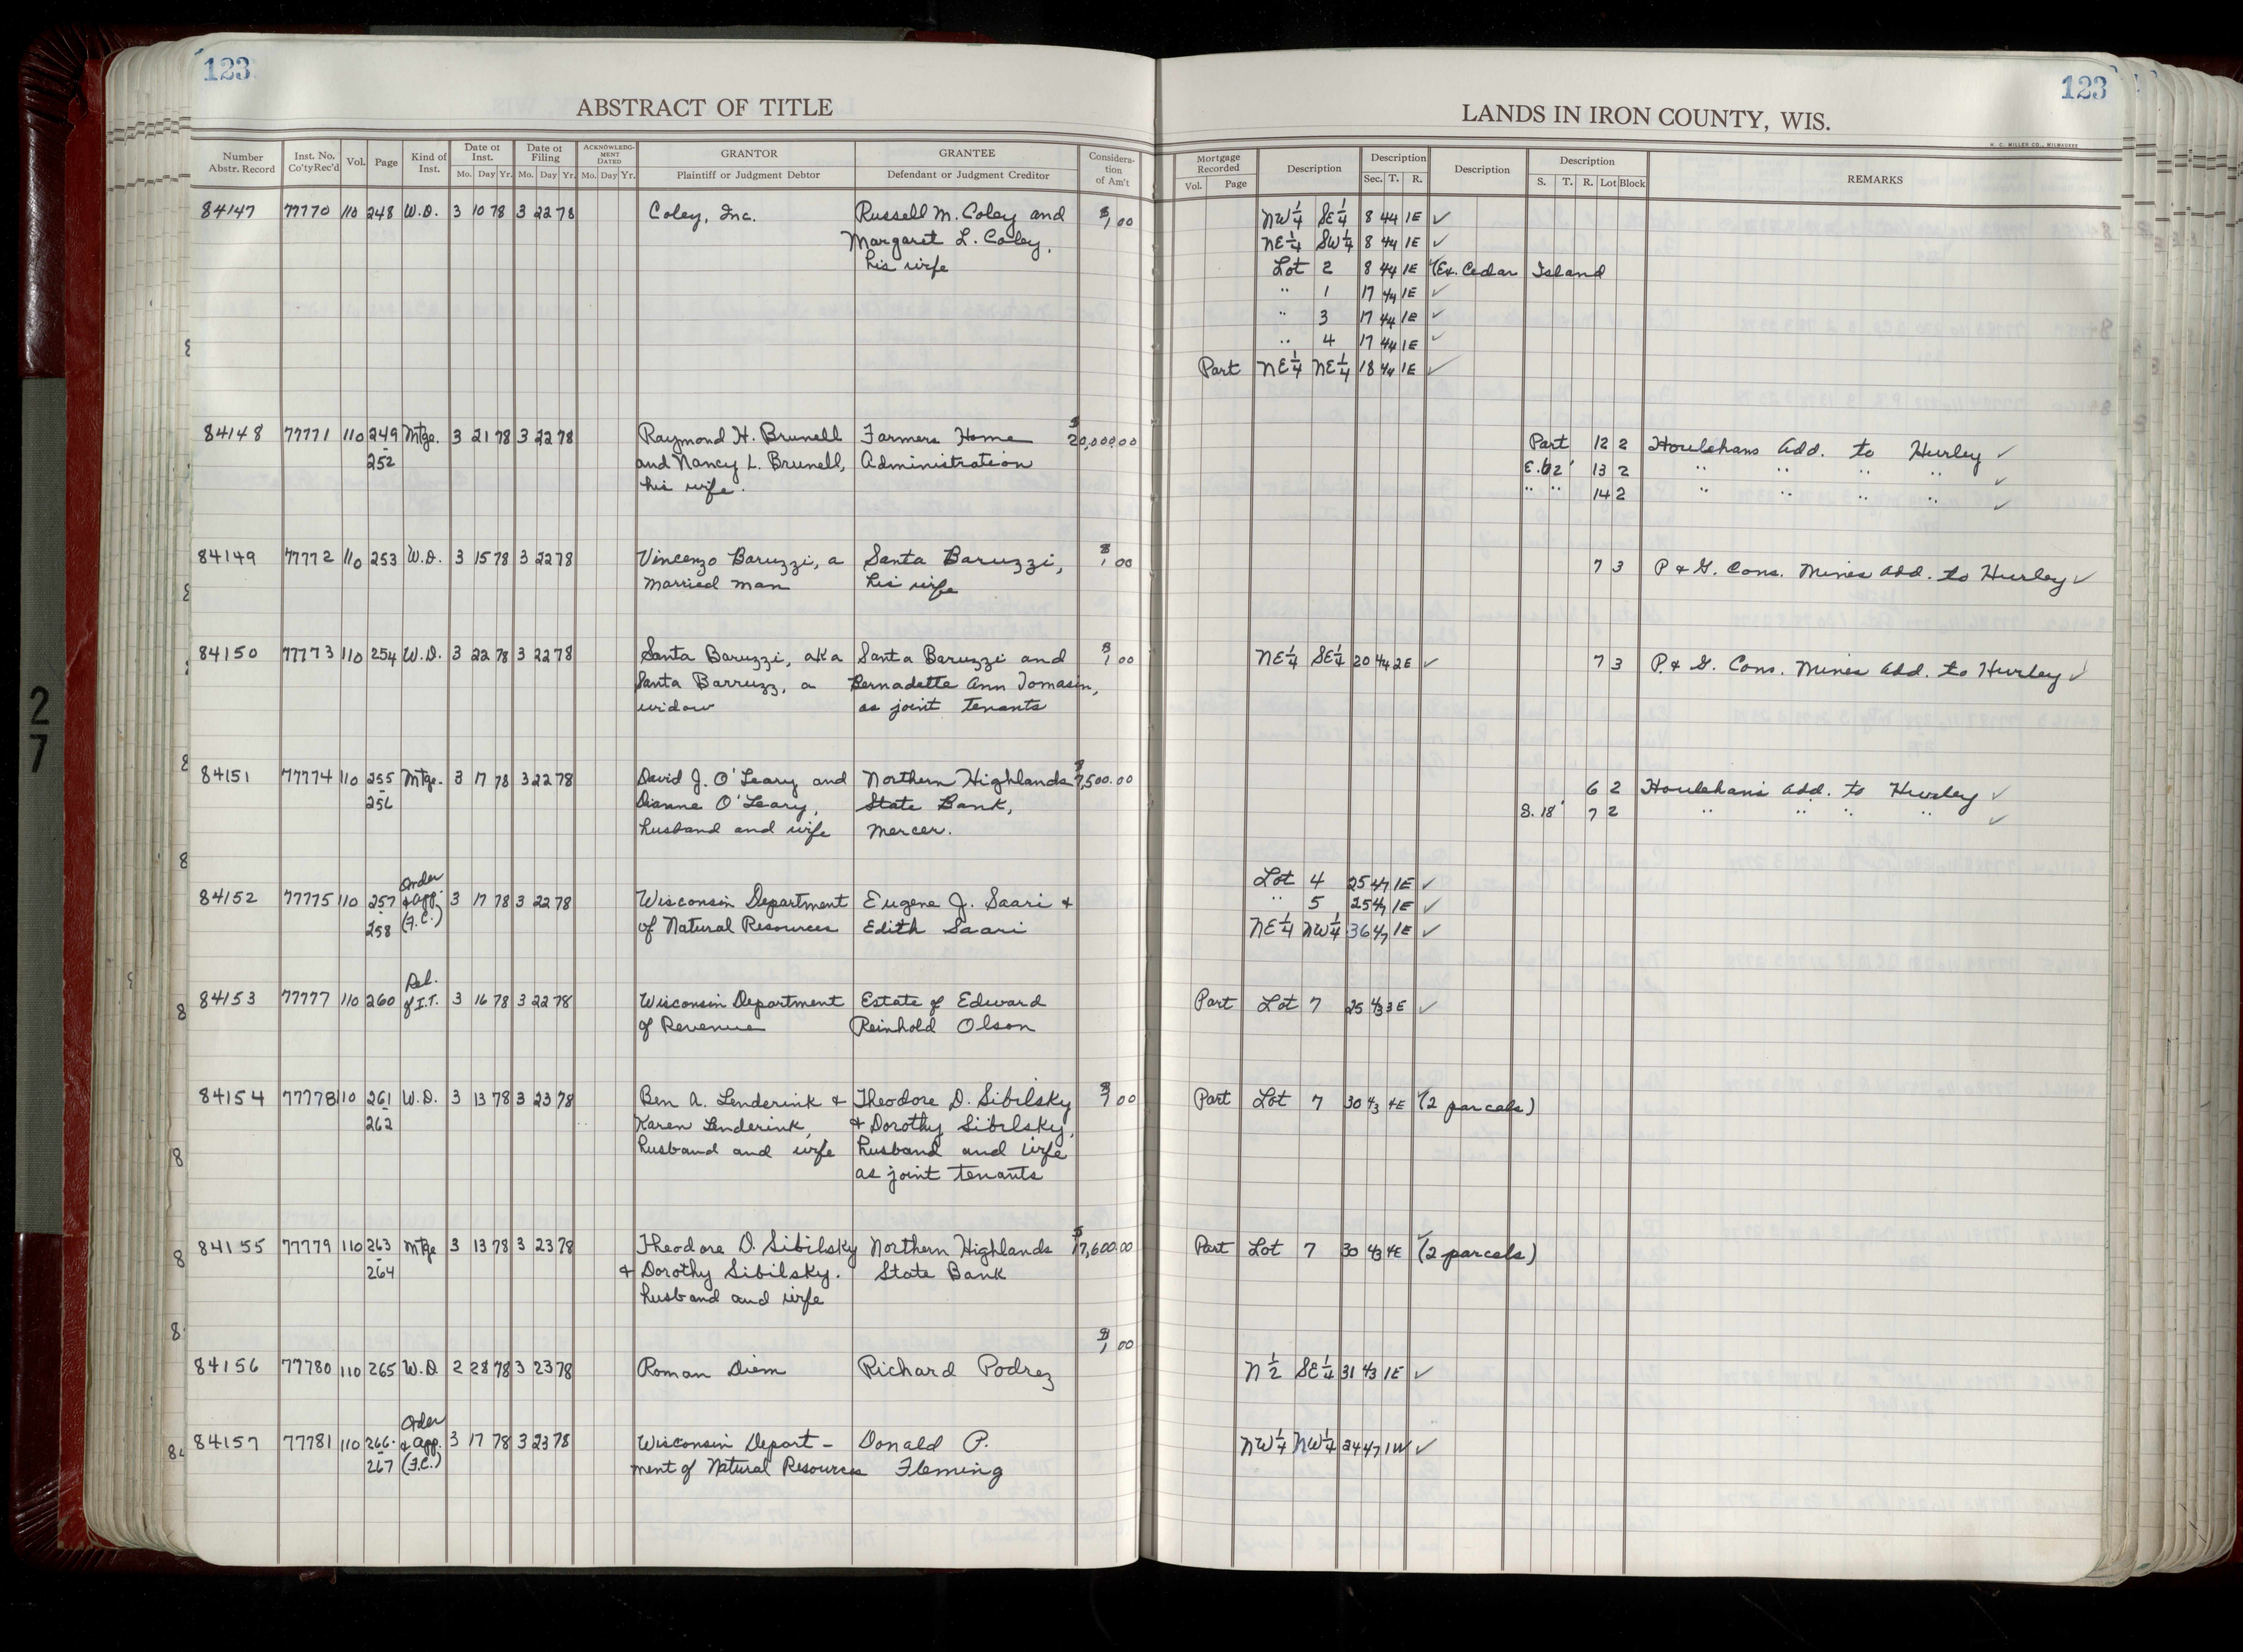 123
ABSTRACT OF TITLE
Number Abstr. Record | Inst. No. Co'ty Rec'd | Vol. | Page | Kind of Inst. | Date of Inst. Mo. Day Yr. | Date of Filing Mo. Day Yr. | ACKNOWLEDG-MENT DATED Mo. Day Yr. | GRANTOR Plaintiff or Judgment Debtor | GRANTEE Defendant or Judgment Creditor | Considera-tion of Am't
84147 77770 110 248 W.D. 3 10 78 3 22 78 Coley, Inc. Russell M. Coley and $1 00
Margaret L. Coley,
his wife
84148 77771 110 249 Mtge. 3 21 78 3 22 78 Raymond H. Brunell Farmers Home $20,000.00
- 252 and Nancy L. Brunell, Administration
his wife.
84149 77772 110 253 W.D. 3 15 78 3 22 78 Vincenzo Baruzzi, a Santa Baruzzi, $1 00
married man his wife
84150 77773 110 254 W.D. 3 22 78 3 22 78 Santa Baruzzi, aka Santa Baruzzi and $1 00
Santa Barruzz, a Bernadette Ann Tomasin,
widow as joint tenants
84151 77774 110 255 Mtge. 3 17 78 3 22 78 David J. O'Leary and Northern Highlands $7,500.00
- 256 Dianne O'Leary, State Bank,
husband and wife Mercer.
Order
84152 77775 110 257 & app. 3 17 78 3 22 78 Wisconsin Department Eugene J. Saari &
- 258 (F.C.) of Natural Resources Edith Saari
Rel.
84153 77777 110 260 of I.T. 3 16 78 3 22 78 Wisconsin Department Estate of Edward
of Revenue Reinhold Olson
84154 77778 110 261 W.D. 3 13 78 3 23 78 Ben A. Lenderink & Theodore D. Sibilsky $1 00
- 262 Karen Lenderink, & Dorothy Sibilsky,
husband and wife husband and wife
as joint tenants
84155 77779 110 263 Mtge 3 13 78 3 23 78 Theodore D. Sibilsky Northern Highlands $17,600.00
- 264 & Dorothy Sibilsky. State Bank
husband and wife
$1 00
84156 77780 110 265 W.D. 2 28 78 3 23 78 Roman Diem Richard Podrez
Order
84157 77781 110 266- & app. 3 17 78 3 23 78 Wisconsin Depart- Donald P.
267 (F.C.) ment of Natural Resources Fleming
123
LANDS IN IRON COUNTY, WIS.
H. C. MILLER CO., MILWAUKEE
Mortgage Recorded Vol. Page | Description | Description Sec. T. R. | Description | Description S. T. R. Lot Block | REMARKS
NW¼ SE¼ 8 44 1E ✓
NE¼ SW¼ 8 44 1E ✓
Lot 2 8 44 1E ✓(Ex. Cedar Island
" 1 17 44 1E ✓
" 3 17 44 1E ✓
" 4 17 44 1E ✓
Part NE¼ NE¼ 18 44 1E ✓
Part 12 2 Houlehans Add. to Hurley ✓
E. 62' 13 2 " " " " ✓
" " 14 2 " " " " ✓
7 3 P & G. Cons. Mines Add. to Hurley ✓
NE¼ SE¼ 20 44 2E ✓ 7 3 P. & G. Cons. Mines Add. to Hurley ✓
6 2 Houlehans Add. to Hurley ✓
S. 18' 7 2 " " " " ✓
Lot 4 25 47 1E ✓
" 5 25 47 1E ✓
NE¼ NW¼ 36 47 1E ✓
Part Lot 7 25 43 3E ✓
Part Lot 7 30 43 4E ✓(2 parcels)
Part Lot 7 30 43 4E ✓(2 parcels)
N½ SE¼ 31 43 1E ✓
NW¼ NW¼ 24 47 1W ✓
27